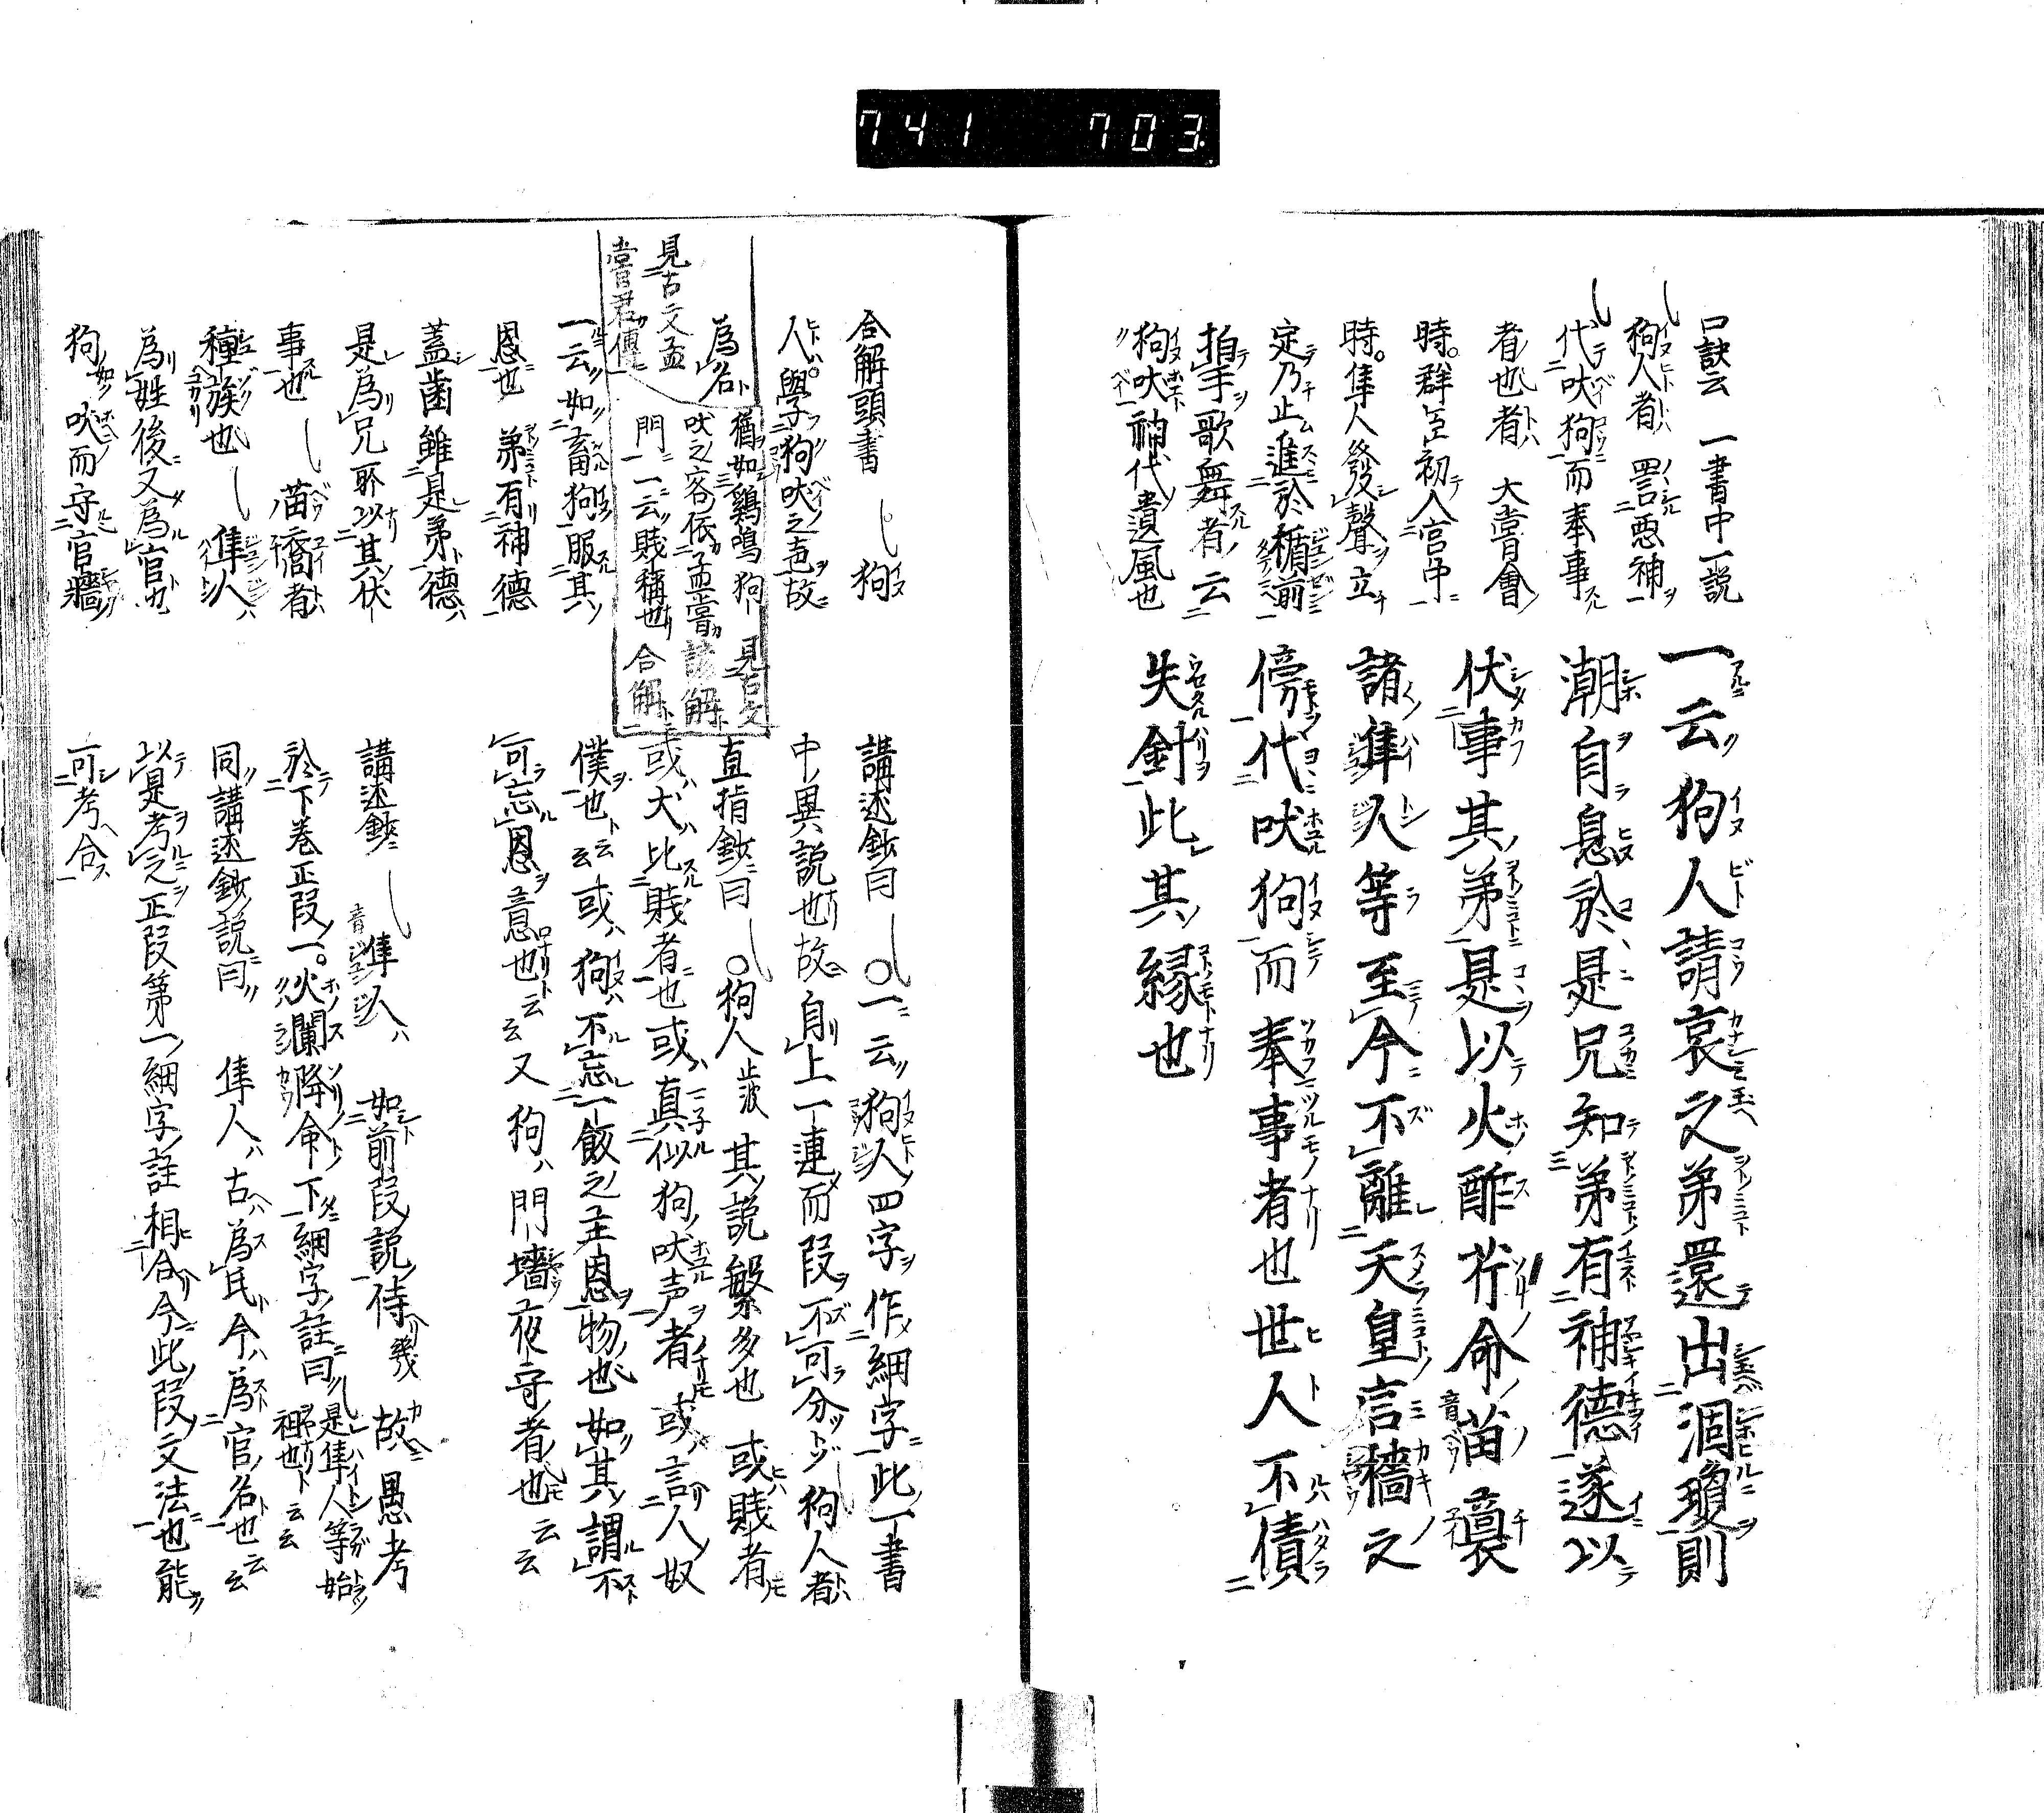 741 703
口訣云 一書中一説
狗人者 詈悪神
代吠狗而奉事
者也者 大嘗會
時。群臣初入宮中
時。隼人發聲立
定乃止進於楯前
拍手歌舞者云
狗吠神代遺風也
一云狗人請哀之弟還出涸瓊則
潮自息於是兄知弟有神德遂以
伏事其弟是以火酢芹命苗裔
諸隼人等至今不離天皇宮墻之
傍代吠狗而奉事者也世人不債
失針此其縁也
合解頭書 狗
人學狗吠之声故
為名
猶如鷄鳴狗 見古文
吠之客依孟嘗 諺解
門一云賤稱也 合解
見古文孟
嘗君傳
一云如畜狗服其
恩也 弟有神德
蓋歯雖是弟德
是為兄所以其伏
事也 苗裔者
種族也 隼人
為姓後又為官也
狗吠而守官牆
講述鈔曰 ○一云狗人四字作細字此一書
中異説也故自上一連而段不可分 狗人者
直指鈔曰 ○狗人止波其説繁多也 或賤者
或犬比賤者也或真似狗吠声者 或言人奴
僕也云云或狗不忘一飯之主恩物也如其謂不
可忘恩意也云云又狗門墻夜守者也云云
講述鈔 隼人 如前段説待 故愚考
於下巻正段一。火闌降命下細字註曰 是隼人等始
祖也云云
同講述鈔説曰 隼人古為氏今為官名也云云
以是考之正段第一細字註相合今此段文法也能
可考合